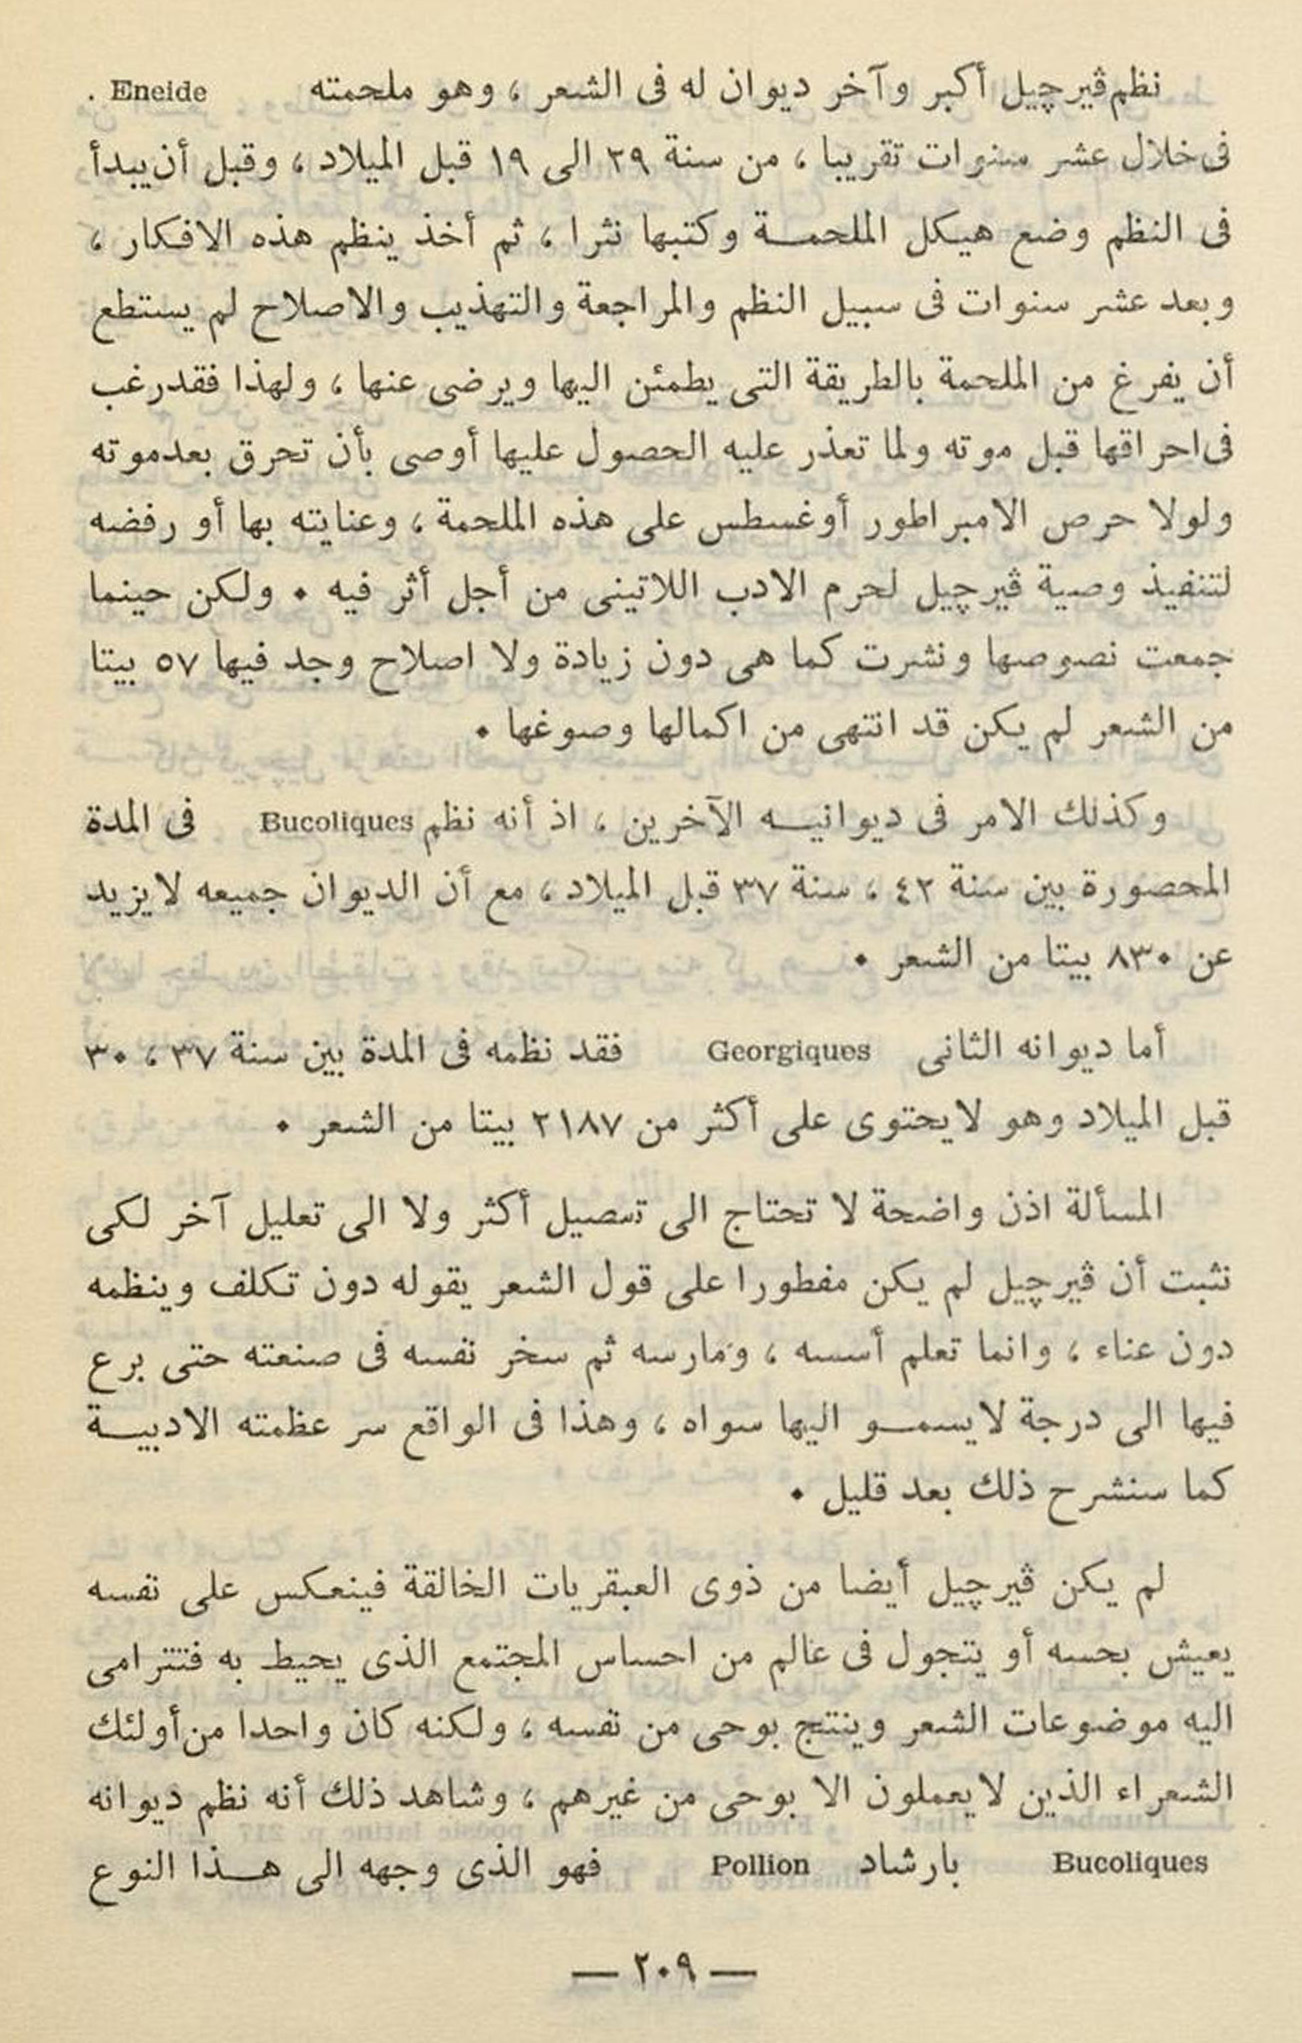 نظم ڤيرچيل أكبر وآخر ديوان له فى الشعر ، وهو ملحمته Eneide .
فى خلال عشر سنوات تقريبا ، من سنة ٢٩ الى ١٩ قبل الميلاد ، وقبل أن يبدأ
فى النظم وضع هيكل الملحمـــة وكتبها نثرا ، ثم أخذ ينظم هذه الافكار ،
وبعد عشر سنوات فى سبيل النظم والمراجعة والتهذيب والاصلاح لم يستطع
أن يفرغ من الملحمة بالطريقة التى يطمئن اليها ويرضى عنها ، ولهذا فقد رغب
فى احراقها قبل موته ولما تعذر عليه الحصول عليها أوصى بأن تحرق بعد موته
ولولا حرص الامبراطور أوغسطس على هذه الملحمة ، وعنايته بها أو رفضه
لتنفيذ وصية ڤيرچيل لحرم الادب اللاتينى من أجل أثر فيه ٠ ولكن حينما
جمعت نصوصها ونشرت كما هى دون زيادة ولا اصلاح وجد فيها ٥٧ بيتا
من الشعر لم يكن قد انتهى من اكمالها وصوغها ٠
وكذلك الامر فى ديوانيـــه الآخرين ، اذ أنه نظم Bucoliques فى المدة
المحصورة بين سنة ٤٢ ، سنة ٣٧ قبل الميلاد ، مع أن الديوان جميعه لا يزيد
عن ٨٣٠ بيتا من الشعر ٠
أما ديوانه الثانى Georgiques فقد نظمه فى المدة بين سنة ٣٧ ، ٣٠
قبل الميلاد وهو لا يحتوى على أكثر من ٢١٨٧ بيتا من الشعر ٠
المسألة اذن واضحة لا تحتاج الى تفصيل أكثر ولا الى تعليل آخر لكى
نثبت أن ڤيرچيل لم يكن مفطورا على قول الشعر يقوله دون تكلف وينظمه
دون عناء ، وانما تعلم أسسه ، ومارسه ثم سخر نفسه فى صنعته حتى برع
فيها الى درجة لا يسمـــو اليها سواه ، وهذا فى الواقع سر عظمته الادبيـــة
كما سنشرح ذلك بعد قليل ٠
لم يكن ڤيرچيل أيضا من ذوى العبقريات الخالقة فينعكس على نفسه
يعيش بحسه أو يتجول فى عالم من احساس المجتمع الذى يحيط به فتترامى
اليه موضوعات الشعر وينتج بوحى من نفسه ، ولكنه كان واحدا من أولئك
الشعراء الذين لا يعملون الا بوحى من غيرهم ، وشاهد ذلك أنه نظم ديوانه
Bucoliques بارشاد Pollion فهو الذى وجهه الى هـــذا النوع
— ٢٠٩ —